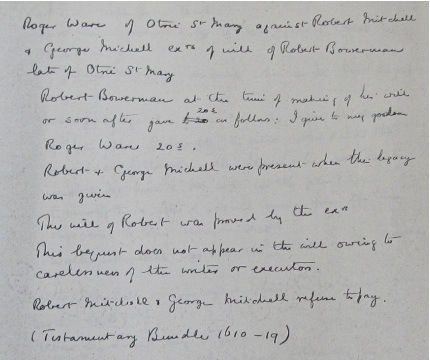 Roger Ware of Otrie St Mary against Robert Mitchell
& George Michell exrs of will of Robert Bowerman
late of Otrie St Mary
Robert Bowerman at the time of making of his will
or soon after gave £20 20s as follows: I give to my godson
Roger Ware 20s.
Robert & George Michell were present when the legacy
was given
The will of Robert was proved by the exrs
This bequest does not appear in the will owing to
carelessness of the writer or executors.
Robert Mitchell & George Mitchell refuse to pay.
(Testamentary Bundle 1610-19)